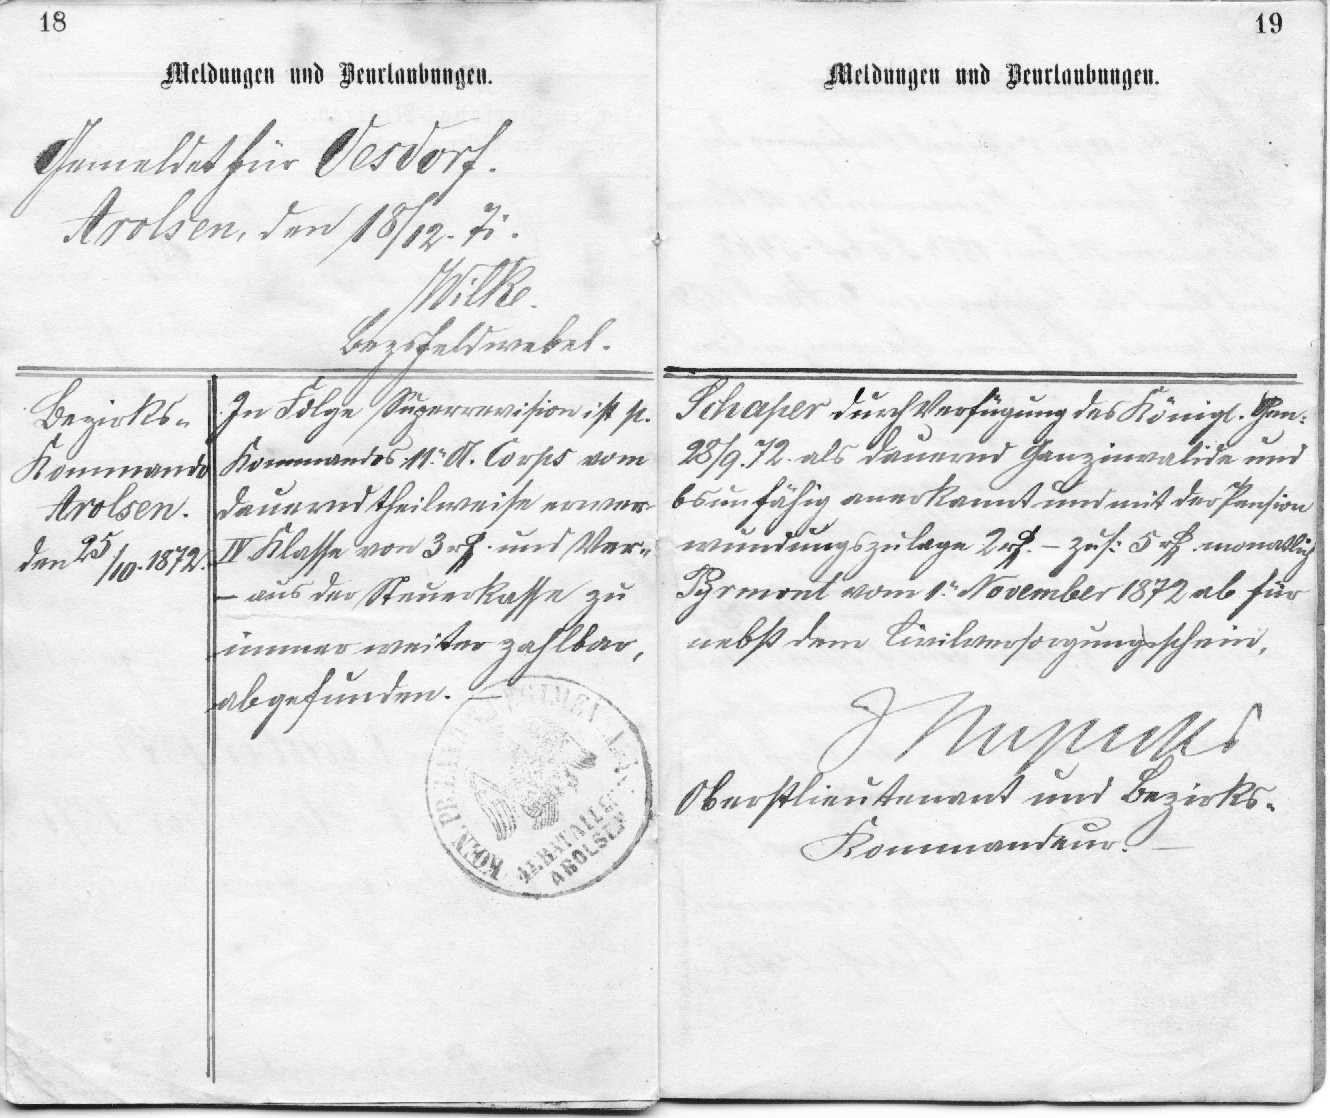 18
Meldungen und Beurlaubungen.
Gemeldet für Oesdorf.
Arolsen, den 18/12. 71.
Wilke.
Bezsfeldwebel.
Bezirks-
Kommando
Arolsen.
den 25/10. 1872.
In Folge Superrevision ist p.
Kommandos 11n A. Corps vom
dauernd theilweise erwer-
IV Klasse von 3 rℓ. und Ver-
— aus der Steuerkasse zu
immer weiter zahlbar,
abgefunden. —
KOEN. PR.
4. BATAILLON
AROLSEN
19
Meldungen und Beurlaubungen.
Schaper durch Verfügung des Königl. Gen:
28/9. 72. als dauernd Ganzinvalide und
bsunfähig anerkannt und mit der Pension
wundungszulage 2 rℓ. — zus: 5 rℓ. monatlich
Pyrmont vom 1n November 1872 ab für
nebst dem Civilversorgungsschein,
Oberstlieutenant und Bezirks-
Kommandeur. —